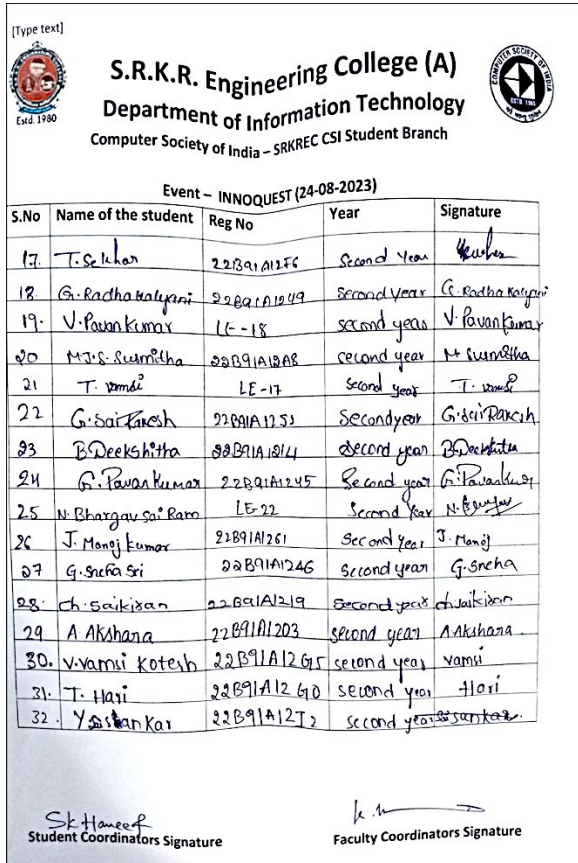 [Type text]
S.R.K.R. Engineering College (A)
Estd. 1980
COMPUTER SOCIETY OF INDIA
ESTD. 1965
Department of Information Technology
Computer Society of India – SRKREC CSI Student Branch
Event – INNOQUEST (24-08-2023)
S.No Name of the student Reg No Year Signature
17. T. Sekhar 22B91A12F6 Second Year
18. G. Radha Kalyani 22B91A1249 Second Year G. Radha Kalyani
19. V. Pavan Kumar LE-18 second year V. Pavan Kumar
20 M.J.S. Susmitha 22B91A12A8 second year M Susmitha
21 T. vamsi LE-17 Second year T. vamsi
22 G. Sai Rakesh 22B91A1253 Second year G. Sai Rakesh
23 B. Deekshitha 22B91A1214 second year B. Deekshitha
24 G. Pavan Kumar 22B91A1245 Second year G. Pavan Kumar
25 N. Bhargav Sai Ram LE-22 Second Year
26 J. Manoj kumar 22B91A1261 Second Year J. Manoj
27 G. Sneha Sri 22B91A1246 Second year G. Sneha
28. ch. saikiran 22B91A1219 Second year ch. saikiran
29 A. Akshara 22B91A1203 second year A. Akshara.
30. V. vamsi Kotesh 22B91A12G5 second year vamsi
31. T. Hari 22B91A12G0 second year Hari
32. Y Sai Sankar 22B91A12I2 second year Sai Sankar.
Sk Haneef
Student Coordinators Signature Faculty Coordinators Signature